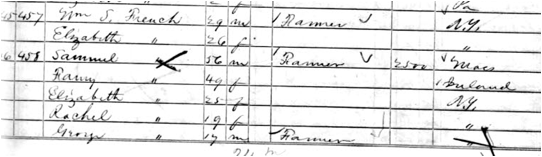 457 Wm S. French 29 m Farmer N.Y.
Elizabeth " 26 f "
458 Samuel " 56 m Farmer 2500 Mass
Fanny " 49 f Ireland
Elizabeth " 25 f N.Y.
Rachel " 19 f "
George " 17 m Farmer "